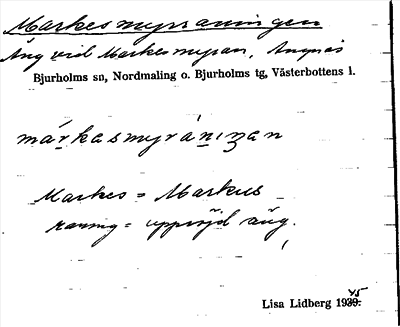 Markesmyrraningen
Äng vid Markesmyran, Ängnäs
Bjurholms sn, Nordmaling o. Bjurholms tg, Västerbottens l.
márkasmyràniŋan
Markes = Markus
raning = uppröjd äng.
Lisa Lidberg 1945